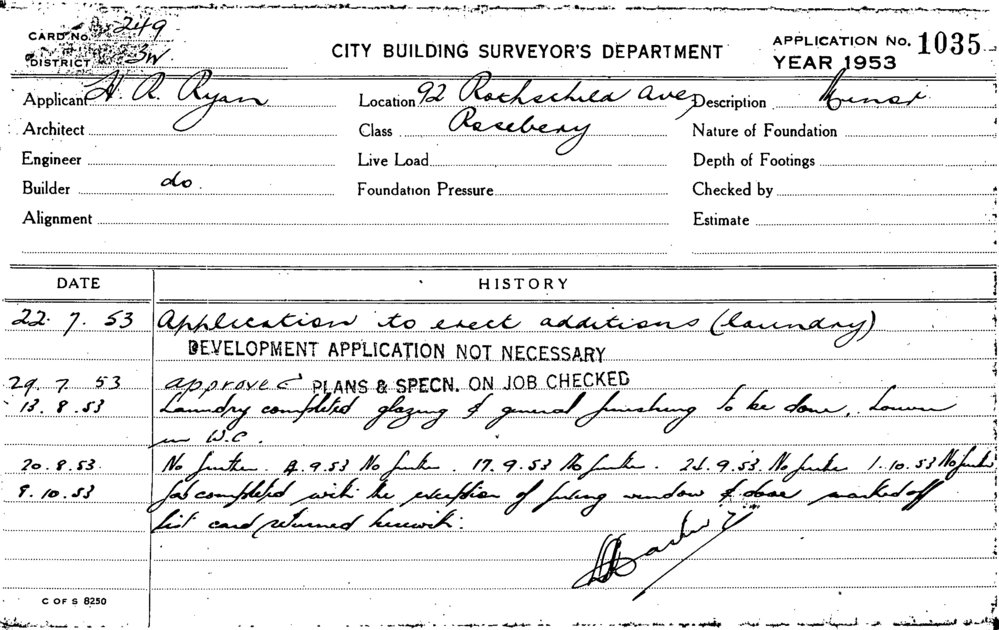 CARD No. 249
DISTRICT 3W
CITY BUILDING SURVEYOR'S DEPARTMENT
APPLICATION No. 1035
YEAR 1953
Applicant H. R. Ryan Location 92 Rothschild Ave, Description Minor
Architect Class Rosebery Nature of Foundation
Engineer Live Load Depth of Footings
Builder do. Foundation Pressure Checked by
Alignment Estimate
DATE HISTORY
22. 7. 53 Application to erect additions (laundry)
DEVELOPMENT APPLICATION NOT NECESSARY
29. 7. 53 approved PLANS & SPECN. ON JOB CHECKED
13. 8. 53 Laundry completed glazing & general finishing to be done.
in W.C.
20. 8. 53. No further. 9.53 No further. 17.9.53 No further. 9.53 No further 1.10.53 No further
9. 10. 53 Job completed with the exception of window & door marked off
list card returned herewith.
C OF S 8250